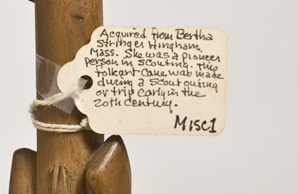 Acquired from Bertha
Stringer Hingham,
Mass. She was a pioneer
person in scouting. This
folkart cane was made
during a scout outing
or trip early in the
20th century.
Misc1